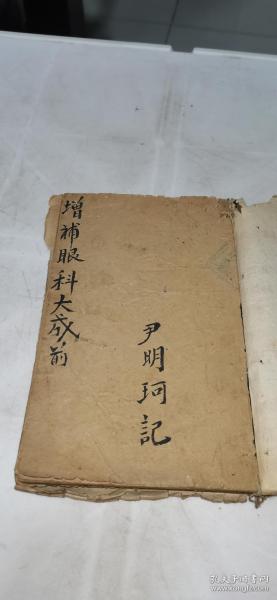 增補眼科大成前
尹明珂記
孔夫子旧书网